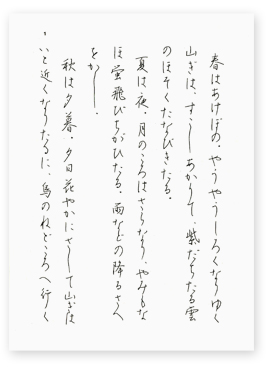 春はあけぼの。やうやうしろくなりゆく
山ぎは、すこしあかりて、紫だちたる雲
のほそくたなびきたる。
夏は夜。月のころはさらなり、やみもな
ほ蛍飛びちがひたる。雨などの降るさへ
をかし。
秋は夕暮。夕日花やかにさして山ぎは
、いと近くなりたるに、烏のねどころへ行く